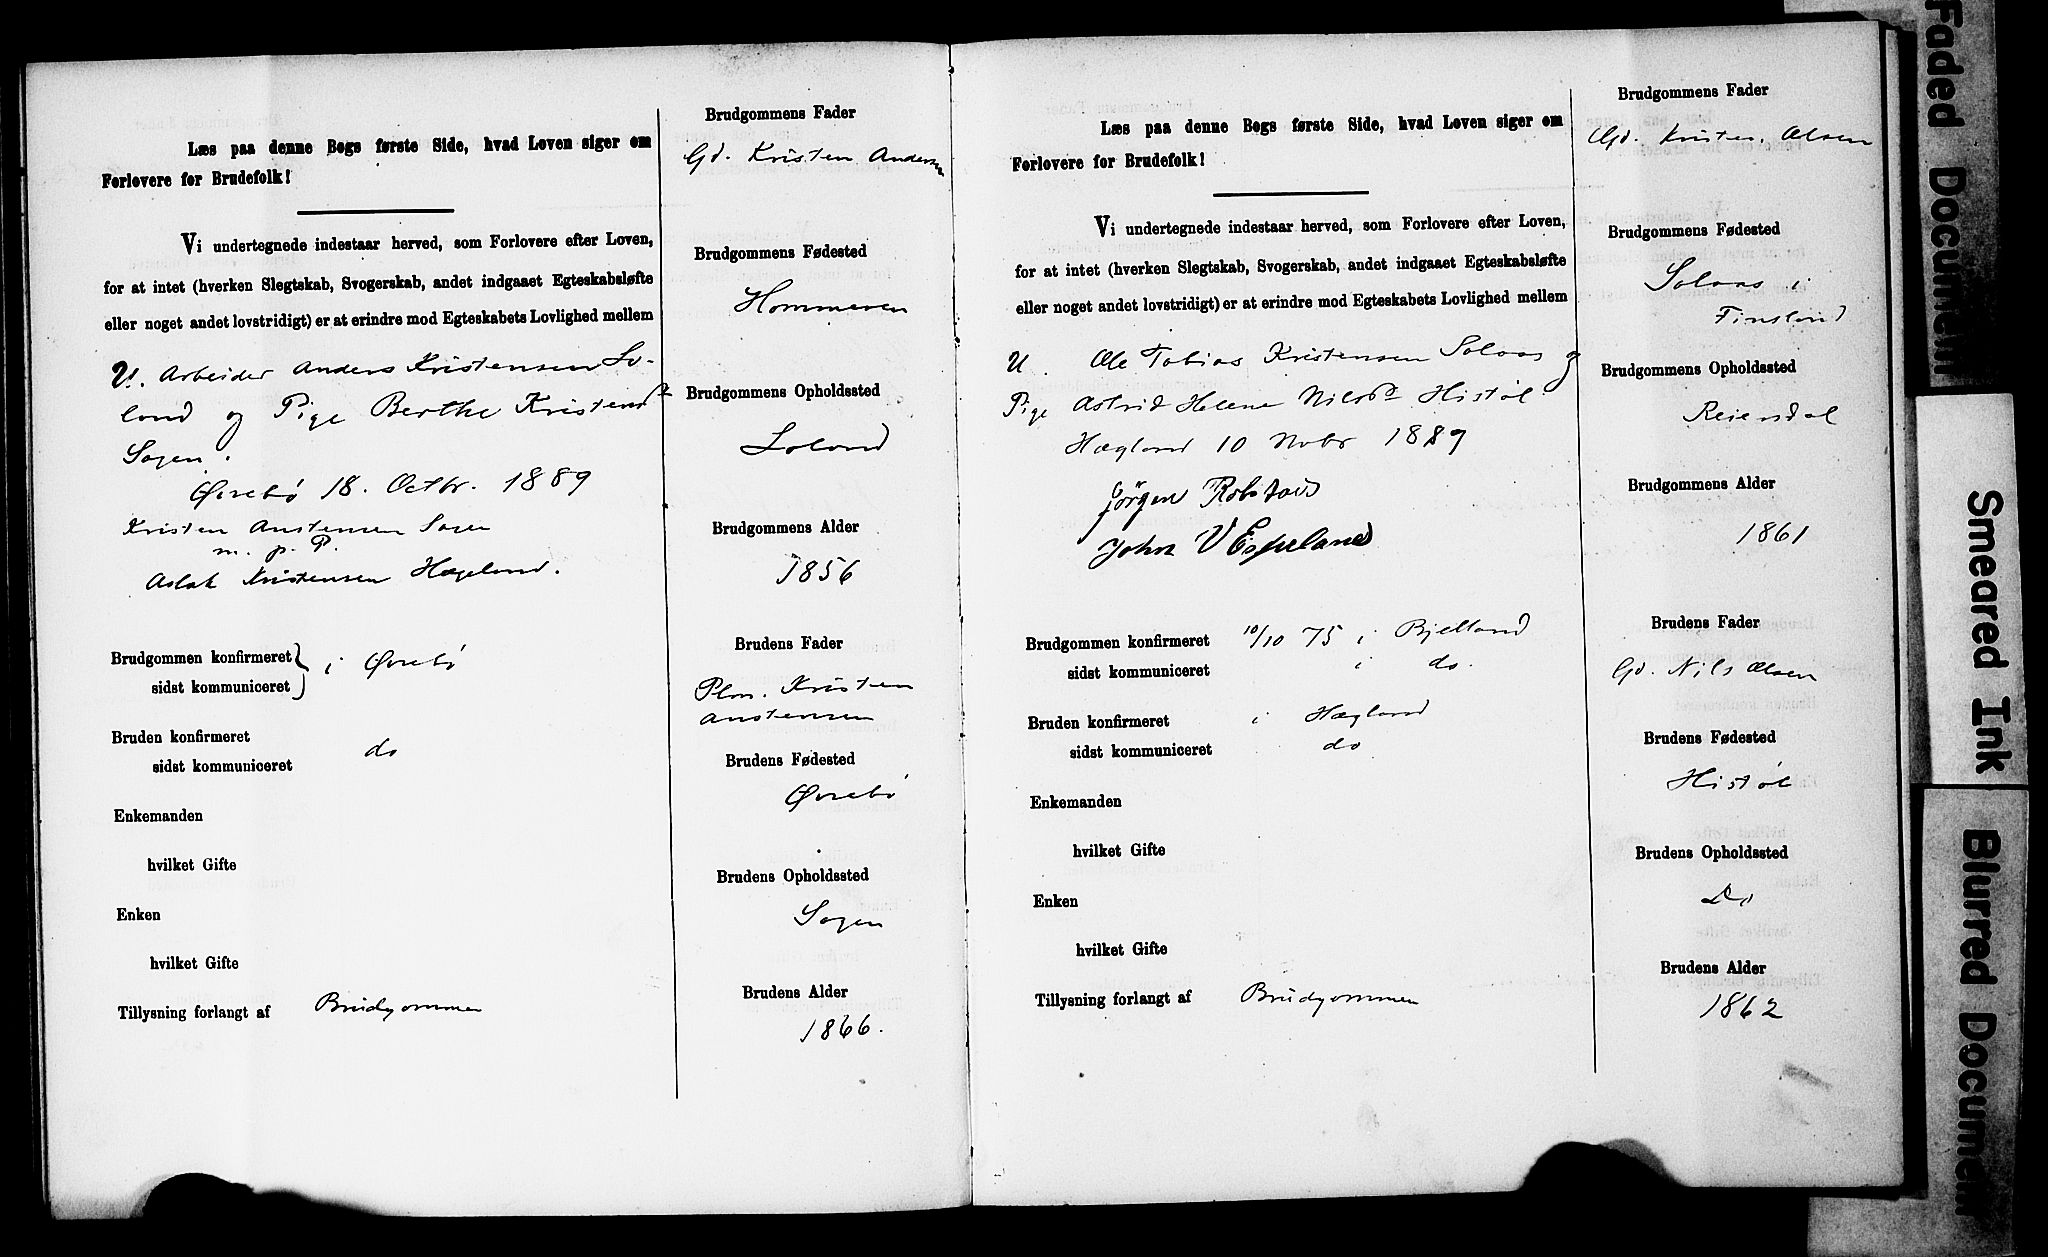 Læs paa denne Bogs første Side, hvad Loven siger om
Forlovere for Brudefolk!
Vi undertegnede indestaar herved, som Forlovere efter Loven,
for at intet (hverken Slegtskab, Svogerskab, andet indgaaet Egteskabsløfte
eller noget andet lovstridigt) er at erindre mod Egteskabets Lovlighed mellem
U. Arbeider Anders Kristensen Lo-
land og Pige Berthe Kristensd
Øvrebø 18. Octbr. 1889
Kristen Anstensen
m. p. P.
Aslak Kristensen Hægeland.
Brudgommen konfirmeret
sidst kommuniceret
i Øvrebø
Bruden konfirmeret
sidst kommuniceret
do
Enkemanden
hvilket Gifte
Enken
hvilket Gifte
Tillysning forlangt af Brudgommen
Brudgommens Fader
Gd. Kristen Andersen
Brudgommens Fødested
Hommeren
Brudgommens Opholdssted
Loland
Brudgommens Alder
1856
Brudens Fader
Plm. Kristen
Anstensen
Brudens Fødested
Øvrebø
Brudens Opholdssted
Brudens Alder
1866.
Læs paa denne Bogs første Side, hvad Loven siger om
Forlovere for Brudefolk!
Vi undertegnede indestaar herved, som Forlovere efter Loven,
for at intet (hverken Slegtskab, Svogerskab, andet indgaaet Egteskabsløfte
eller noget andet lovstridigt) er at erindre mod Egteskabets Lovlighed mellem
U. Ole Tobias Kristensen Solaas og
Pige Astrid Helene Nilsd Histøl
Hægland 10 Novbr 1889
Jörgen Robstad
John V Espeland
Brudgommen konfirmeret 10/10 75 i Bjelland
sidst kommuniceret i do.
Bruden konfirmeret i Hægland
sidst kommuniceret do
Enkemanden
hvilket Gifte
Enken
hvilket Gifte
Tillysning forlangt af Brudgommen
Brudgommens Fader
Gd. Kristen Olsen
Brudgommens Fødested
Solaas i
Finsland
Brudgommens Opholdssted
Reiersdal
Brudgommens Alder
1861
Brudens Fader
Gd. Nils Olsen
Brudens Fødested
Histøl
Brudens Opholdssted
Do
Brudens Alder
1862
Faded Document
Smeared Ink
Blurred Document